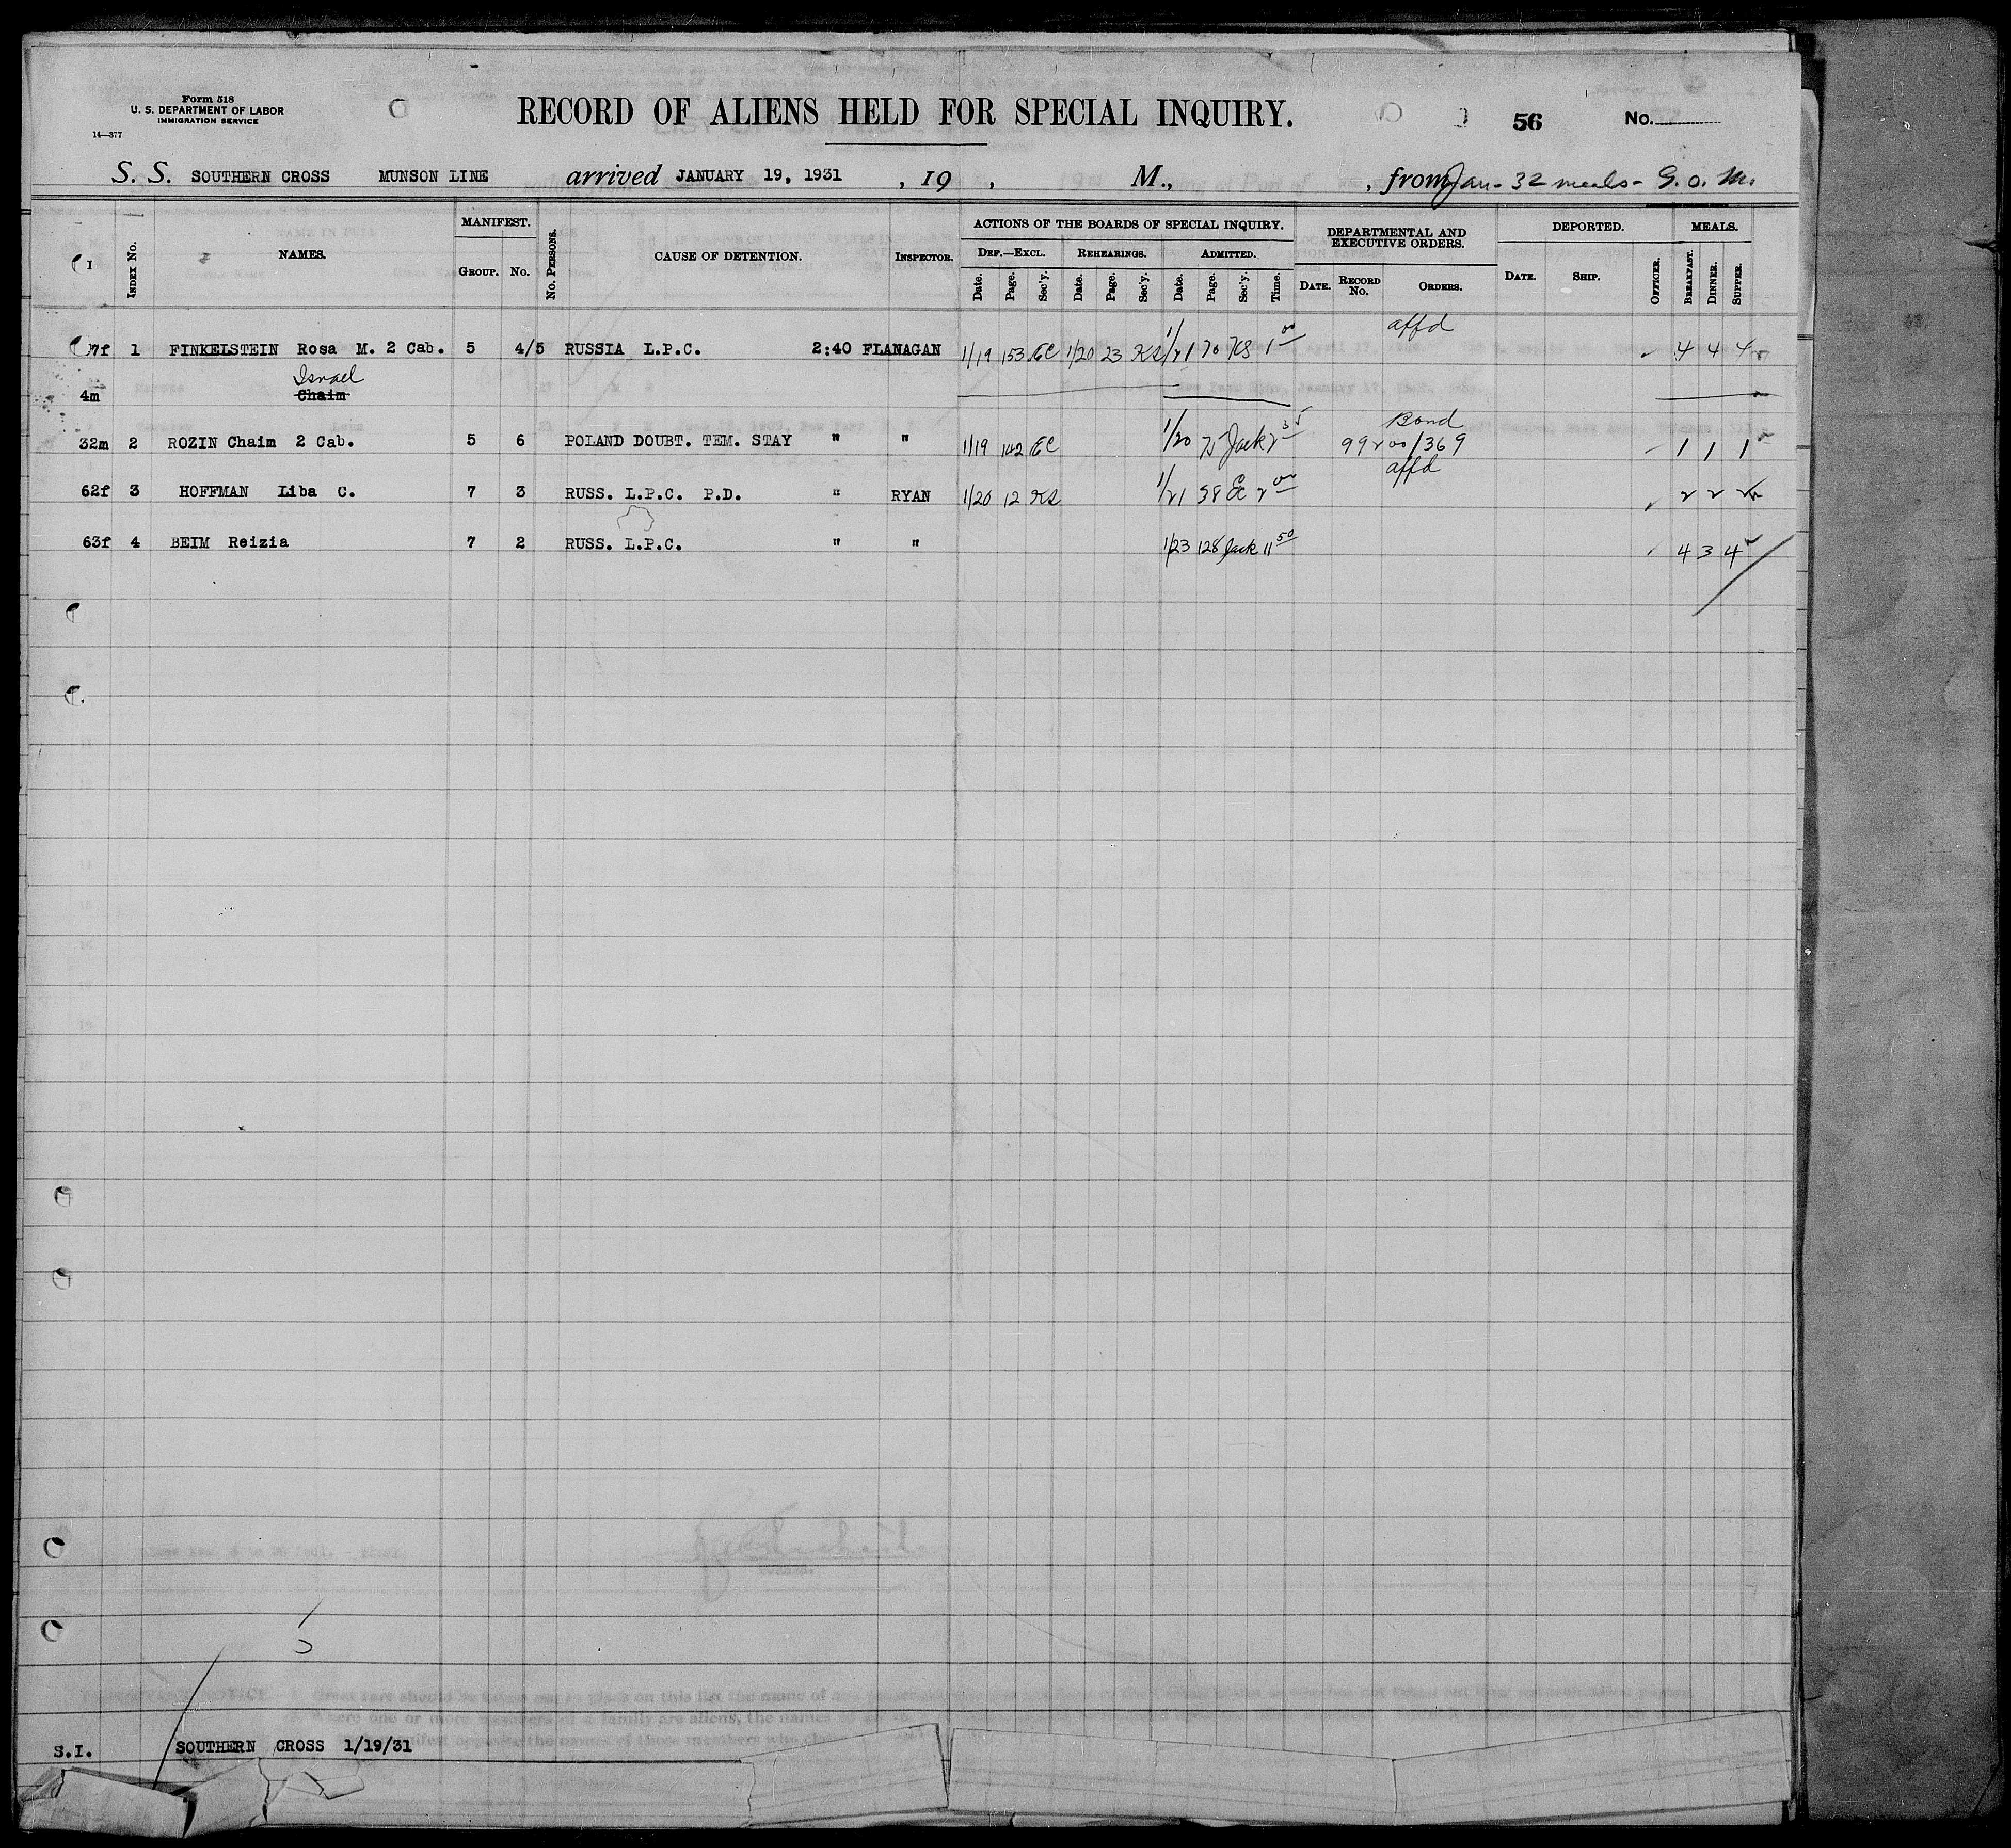 Form 518
U. S. DEPARTMENT OF LABOR
IMMIGRATION SERVICE
14—377
RECORD OF ALIENS HELD FOR SPECIAL INQUIRY.
56 No.
S. S. SOUTHERN CROSS MUNSON LINE arrived JANUARY 19, 1931 , 19 , M., , from Jan - 32 meals - G. O. M.
MANIFEST. ACTIONS OF THE BOARDS OF SPECIAL INQUIRY. DEPARTMENTAL AND EXECUTIVE ORDERS. DEPORTED. MEALS.
I INDEX No. NAMES. GROUP. No. No. PERSONS. CAUSE OF DETENTION. INSPECTOR. DEF.—EXCL. REHEARINGS. ADMITTED.
Date. Page. Sec'y. Date. Page. Sec'y. Date. Page. Sec'y. Time. DATE. RECORD No. ORDERS. DATE. SHIP. OFFICER. BREAKFAST. DINNER. SUPPER.
affd
7f 1 FINKELSTEIN Rosa M. 2 Cab. 5 4/5 RUSSIA L.P.C. 2:40 FLANAGAN 1/19 153 EC 1/20 23 KS 1/21 70 KS 1 00 4 4 4
Israel
4m Chaim
Bond
32m 2 ROZIN Chaim 2 Cab. 5 6 POLAND DOUBT. TEM. STAY " " 1/19 142 EC 1/20 75 Jack 2 35 99200/369 1 1 1
affd
62f 3 HOFFMAN Liba C. 7 3 RUSS. L.P.C. P.D. " RYAN 1/20 12 KS 1/21 58 EC 2 00 2 2 2
63f 4 BEIM Reizia 7 2 RUSS. L.P.C. " " 1/23 128 Jack 11 50 4 3 4
S.I. SOUTHERN CROSS 1/19/31